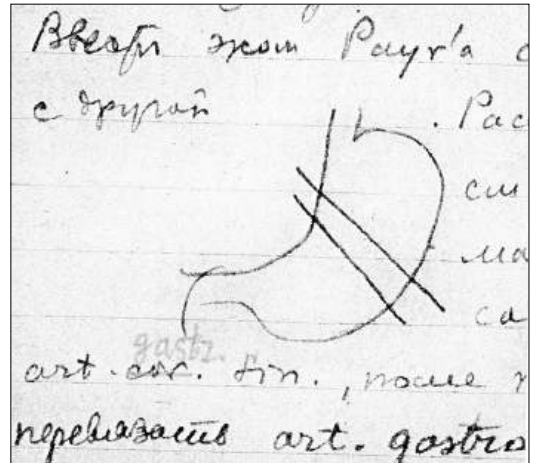 Ввести жом Payr'a с
с другой . Рас
см
ма
са
gastr.
art. cor. sin., после п
перевязать art. gastro